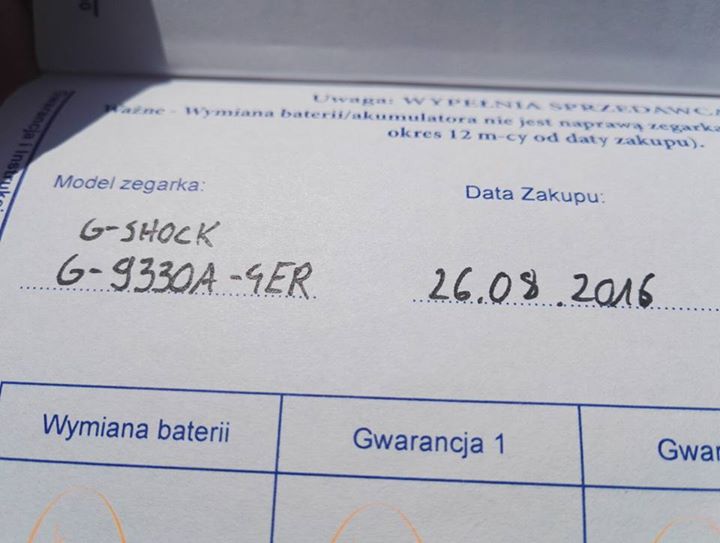 Uwaga: WYPEŁNIA SPRZEDAWC
Ważne - Wymiana baterii/akumulatora nie jest naprawą zegarka
okres 12 m-cy od daty zakupu).
Gwarancja i Instrukcj
Model zegarka:
Data Zakupu:
G-SHOCK
G-9330A-4ER
26.08.2016
Wymiana baterii
Gwarancja 1
Gwar